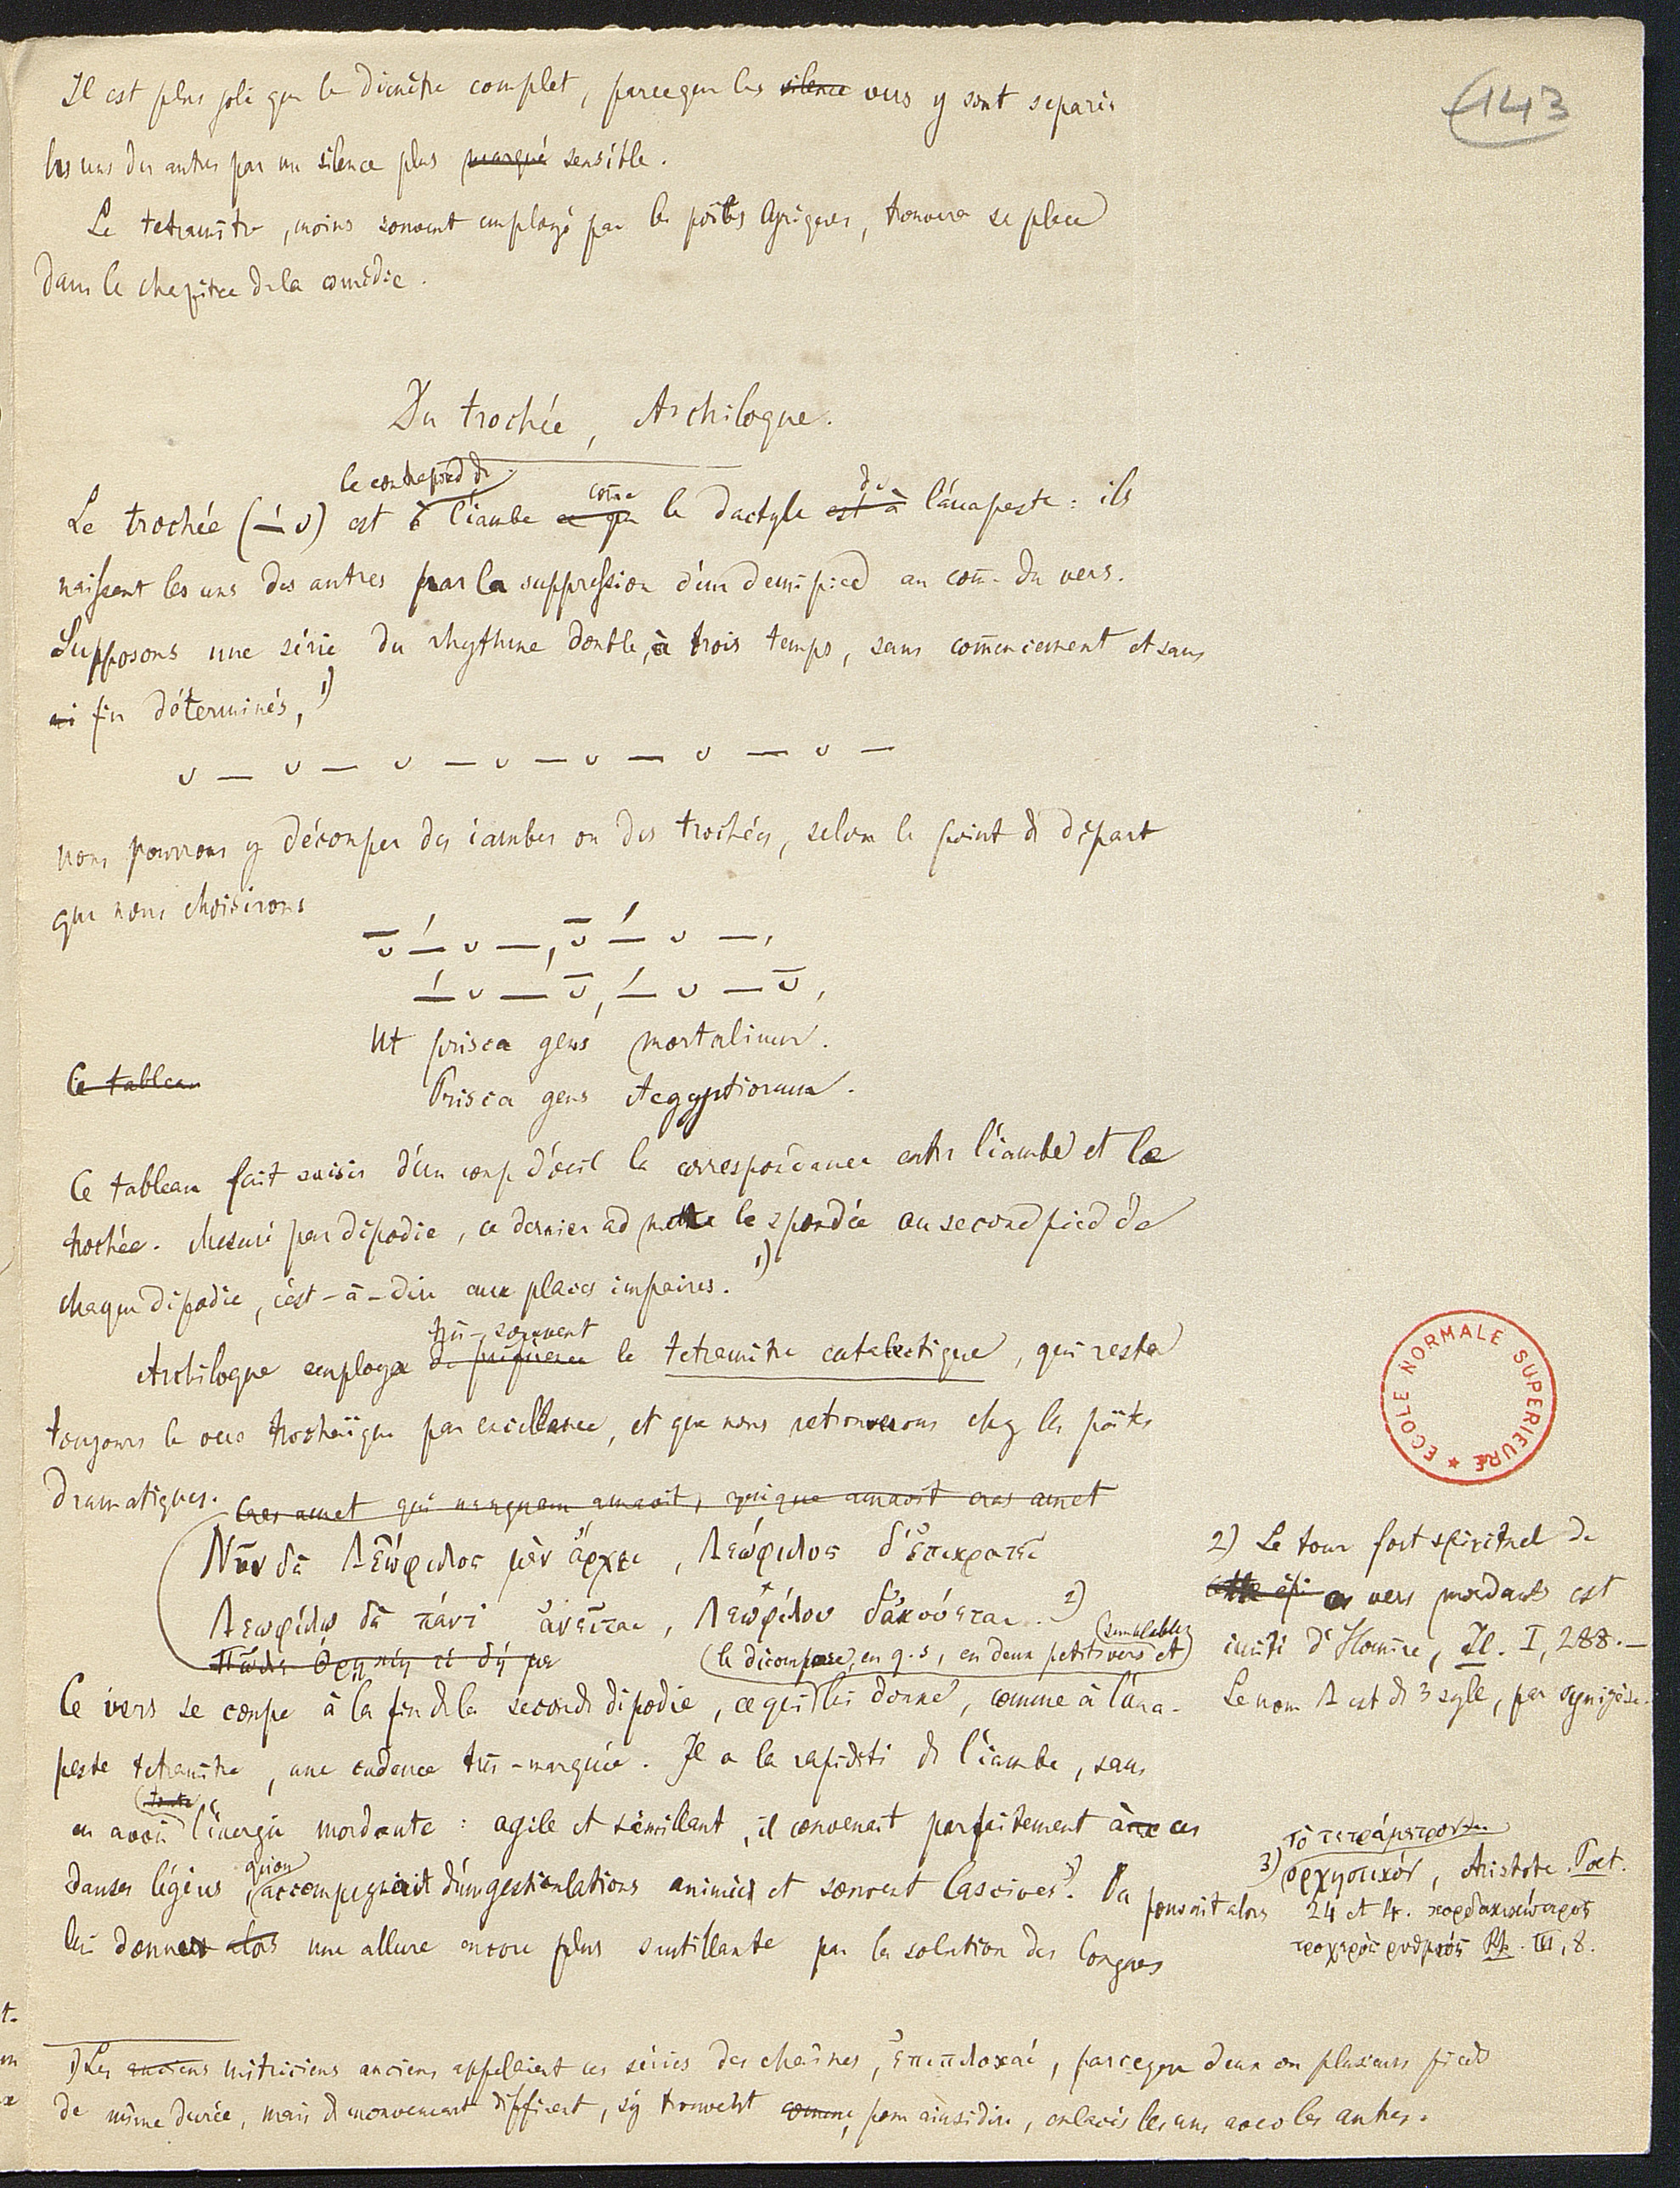 143
Il est plus joli que le dimètre complet, parceque les silence vers y sont séparés
les uns des autres par un silence plus marqué sensible.
Le tetramètre, moins souvent employé par les poëtes lyriques, trouvera sa place
dans le chapitre de la comédie.
Du trochée, Archiloque.
le contrepied de
come
du
Le trochée (–́ ᴗ) est à l'iambe ce que le dactyle est à l'anapeste : ils
naissent les uns des autres par la suppression d'un demi pied au com. du vers.
Supposons une série du rhythme double, à trois temps, sans commencement et sans
ni fin déterminés, 1)
ᴗ – ᴗ – ᴗ – ᴗ – ᴗ – ᴗ – ᴗ –
nous pourrons y découper des iambes ou des trochées, selon le point de départ
que nous choisirons
ᴗ̄ –́ ᴗ –, ᴗ̄ –́ ᴗ –,
–́ ᴗ – ᴗ̄, –́ ᴗ – ᴗ̄,
Ut prisca gens mortalium.
Ce tableau
Prisca gens Aegyptiorum.
Ce tableau fait saisir d'un coup d'oeil la correspondance entre l'iambe et le
trochée. Mesuré par dipodie, ce dernier admette le spondée au second pied de
chaque dipodie, c'est-à-dire aux places impaires. 1)
très-souvent
Archiloque employa de préférence le tetramètre catalectique, qui resta
toujours le vers trochaïque par excellence, et que nous retrouverons chez les poëtes
dramatiques. Cras amet qui nunquam amavit, quique amavit cras amet
Νῦν δὲ Λεώφιλος μὲν ἄρχει, Λεώφιλος δ' ἐπικρατεῖ
Λεωφίλῳ δὲ πάντ' ἀνεῖται, Λεωφίλου δ' ἀκούεται. 2)
(le décompose, en q.s, en deux petits vers et) (semblables
Ce vers se coupe à la fin de la seconde dipodie, ce qui lui donne, comme à l'ana-
peste tetramètre, une cadence très-marquée. Il a la rapidité de l'iambe, sans
(toute
en avoir l'énergie mordante : agile et sémillant, il convenait parfaitement à ces
qu'on
danses légères accompagnait d'un gesticulations animées et souvent lascives 3). On pouvait alors
lui donner alors une allure encore plus sautillante par la solution des longues
2) Le tour fort spirituel de
ces vers mordants est
imité d'Homère, Il. I, 288.—
Le nom Λ est de 3 sylle, par synizèse.
τὸ τετράμετρον
3) ὀρχηστικόν, Aristote Poet.
24 et 4. κορδακικώτερος
τροχερὸς ῥυθμός Rh. III, 8.
1) Les anciens métriciens anciens appelaient ces séries des chaînes, ἐπιπλοκαί, parceque deux ou plusieurs pieds
de même durée, mais de mouvement différent, s'y trouvent comme, pour ainsi dire, enlacés les uns avec les autres.
ECOLE NORMALE SUPERIEURE